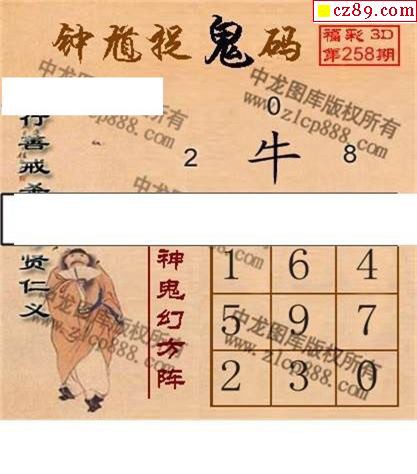 cz89.com
钟馗捉鬼码
福彩3D
第258期
行善戒
贤仁义
0
2 牛 8
神鬼幻方阵
1 6 4
5 9 7
2 3 0
中龙图库版权所有
www.zlcp888.com
中龙图库版权所有
www.zlcp888.com
中龙图库版权所有
www.zlcp888.com
中龙图库版权所有
www.zlcp888.com